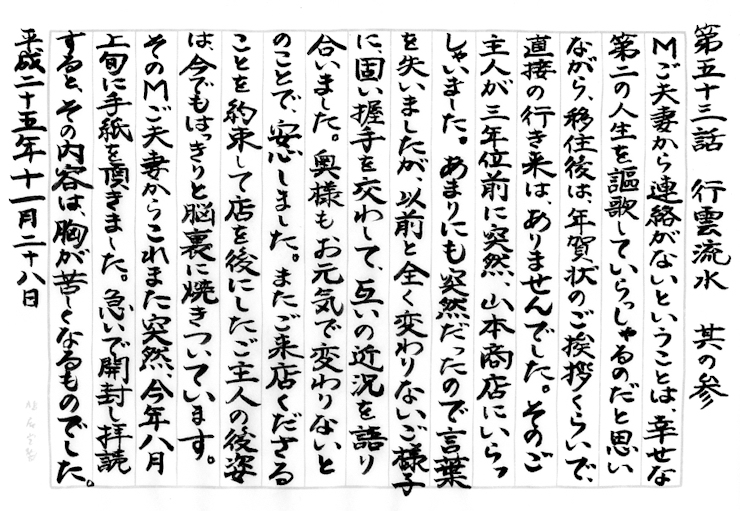 第五十三話　行雲流水　其の参
Mご夫妻から連絡がないということは、幸せな
第二の人生を謳歌していらっしゃるのだと思い
ながら、移住後は、年賀状のご挨拶くらいで、
直接の行き来は、ありませんでした。そのご
主人が三年位前に突然、山本商店にいらっ
しゃいました。あまりにも突然だったので言葉
を失いましたが、以前と全く変わりないご様子
に、固い握手を交わして、互いの近況を語り
合いました。奥様もお元気で変わりないと
のことで、安心しました。またご来店くださる
ことを約束して店を後にしたご主人の後姿
は、今でもはっきりと脳裏に焼きついています。
そのMご夫妻からこれまた突然、今年八月
上旬に手紙を頂きました。急いで開封し拝読
すると、その内容は、胸が苦しくなるものでした。
平成二十五年十一月二十八日